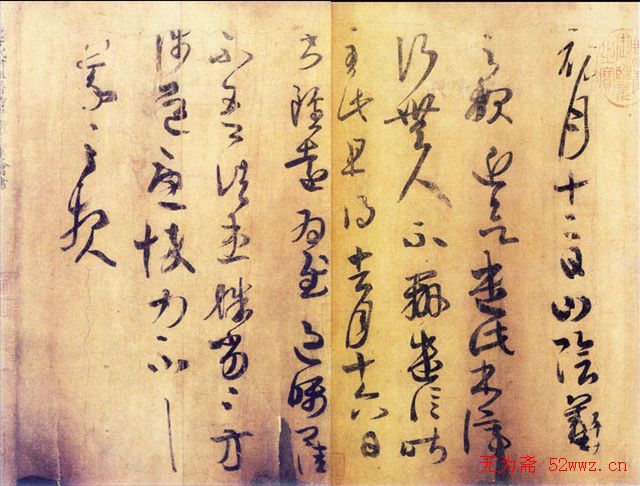 初月十二日山陰羲
之報近欲遣此書停
行無人不辦遣信昨
至此且得去月十六日
書雖遠為慰過囑卿佳
不吾諸患殊劣〻方
涉道憂悴力不具
羲之報
无为斋 52wwz.cn